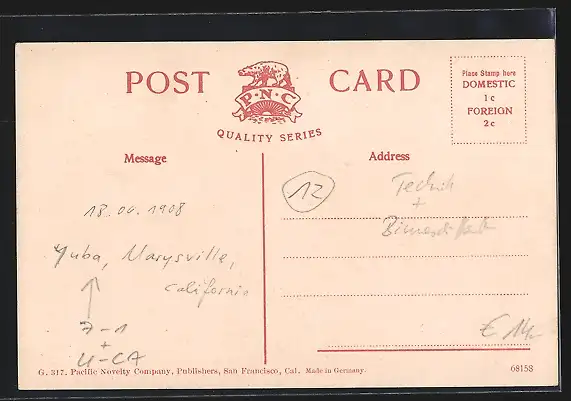 POST CARD
P·N·C
QUALITY SERIES
Place Stamp here
DOMESTIC
1c
FOREIGN
2c
Message
Address
12
Technik
+
18.00.1908
Yuba, Marysville,
California
7-1
+
U-CA
€ 14,-
G. 317. Pacific Novelty Company, Publishers, San Francisco, Cal. Made in Germany.
68153